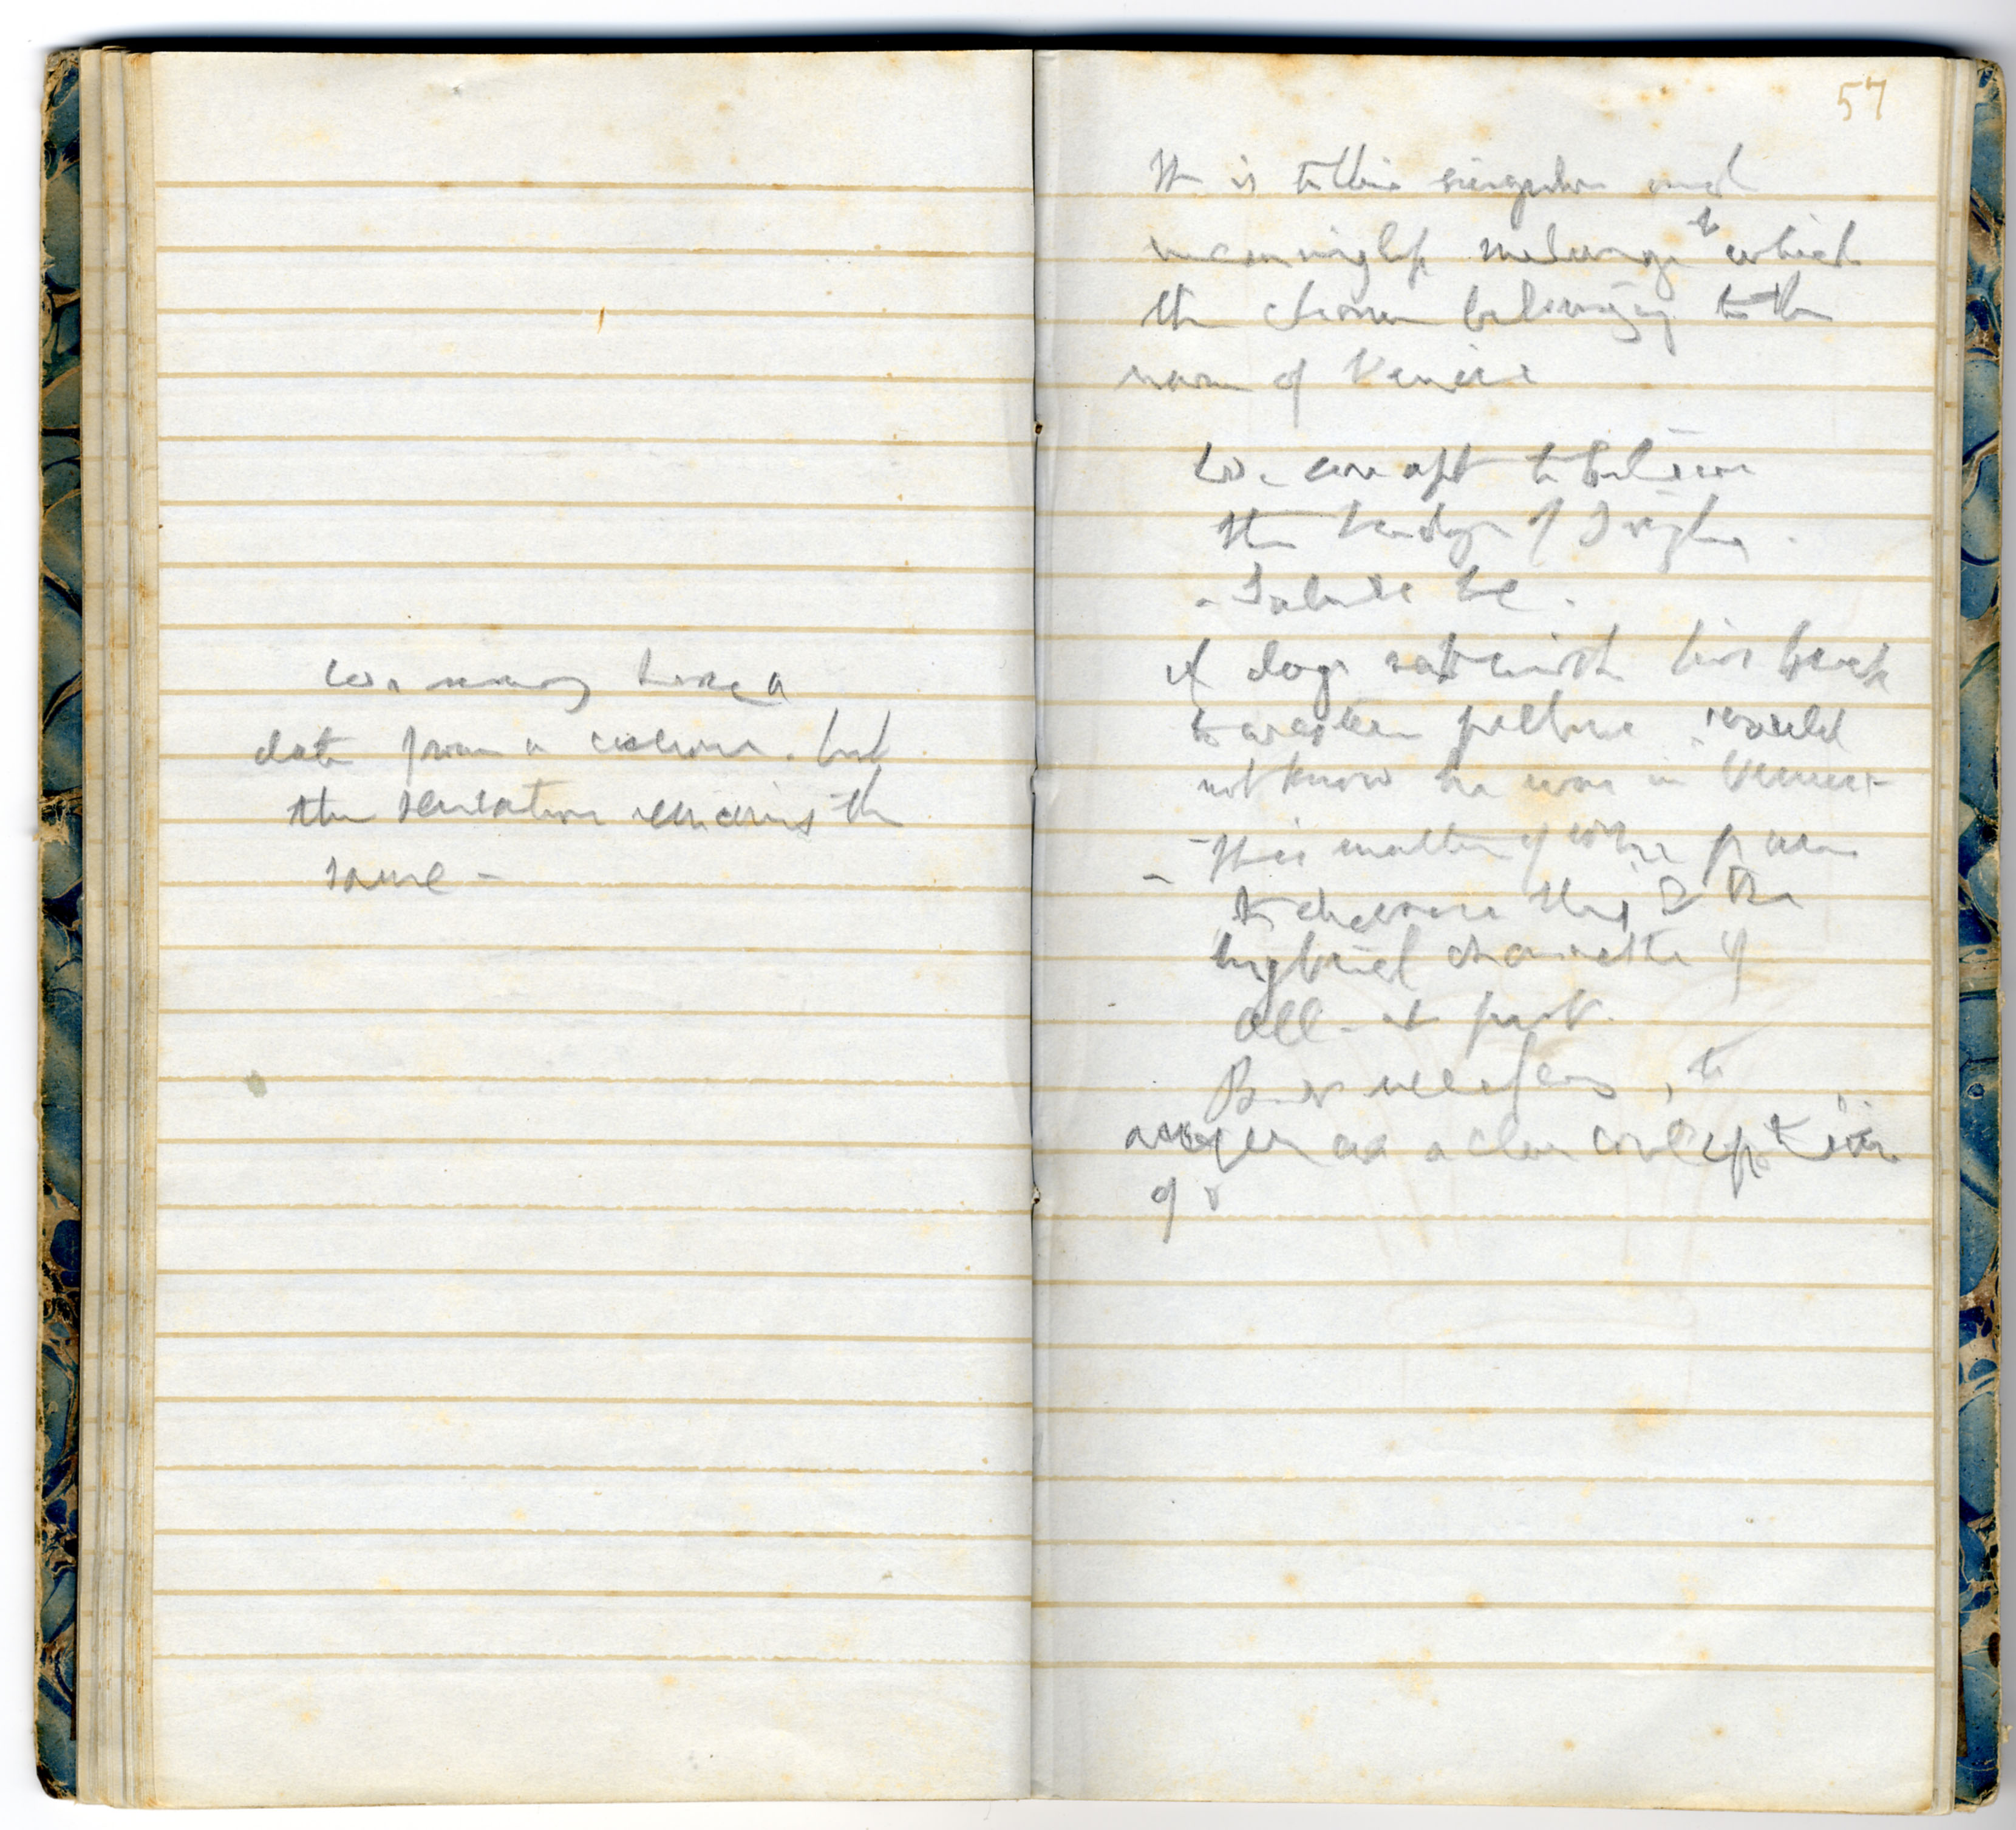 we may have a
date from a        . but
the sensation remains the
same -
57
It is to this singular and
meaningless melange to which
the charm belonging to the
name of Venice
We are apt to believe
the bridge of Sighs .
- Salute &c .
if doge sat with his back
to        picture would
not know he was in Venice -
- It is matter of        
- to        this & the
hybrid character of
all - at first.
But        , to
       as a clear conception
of